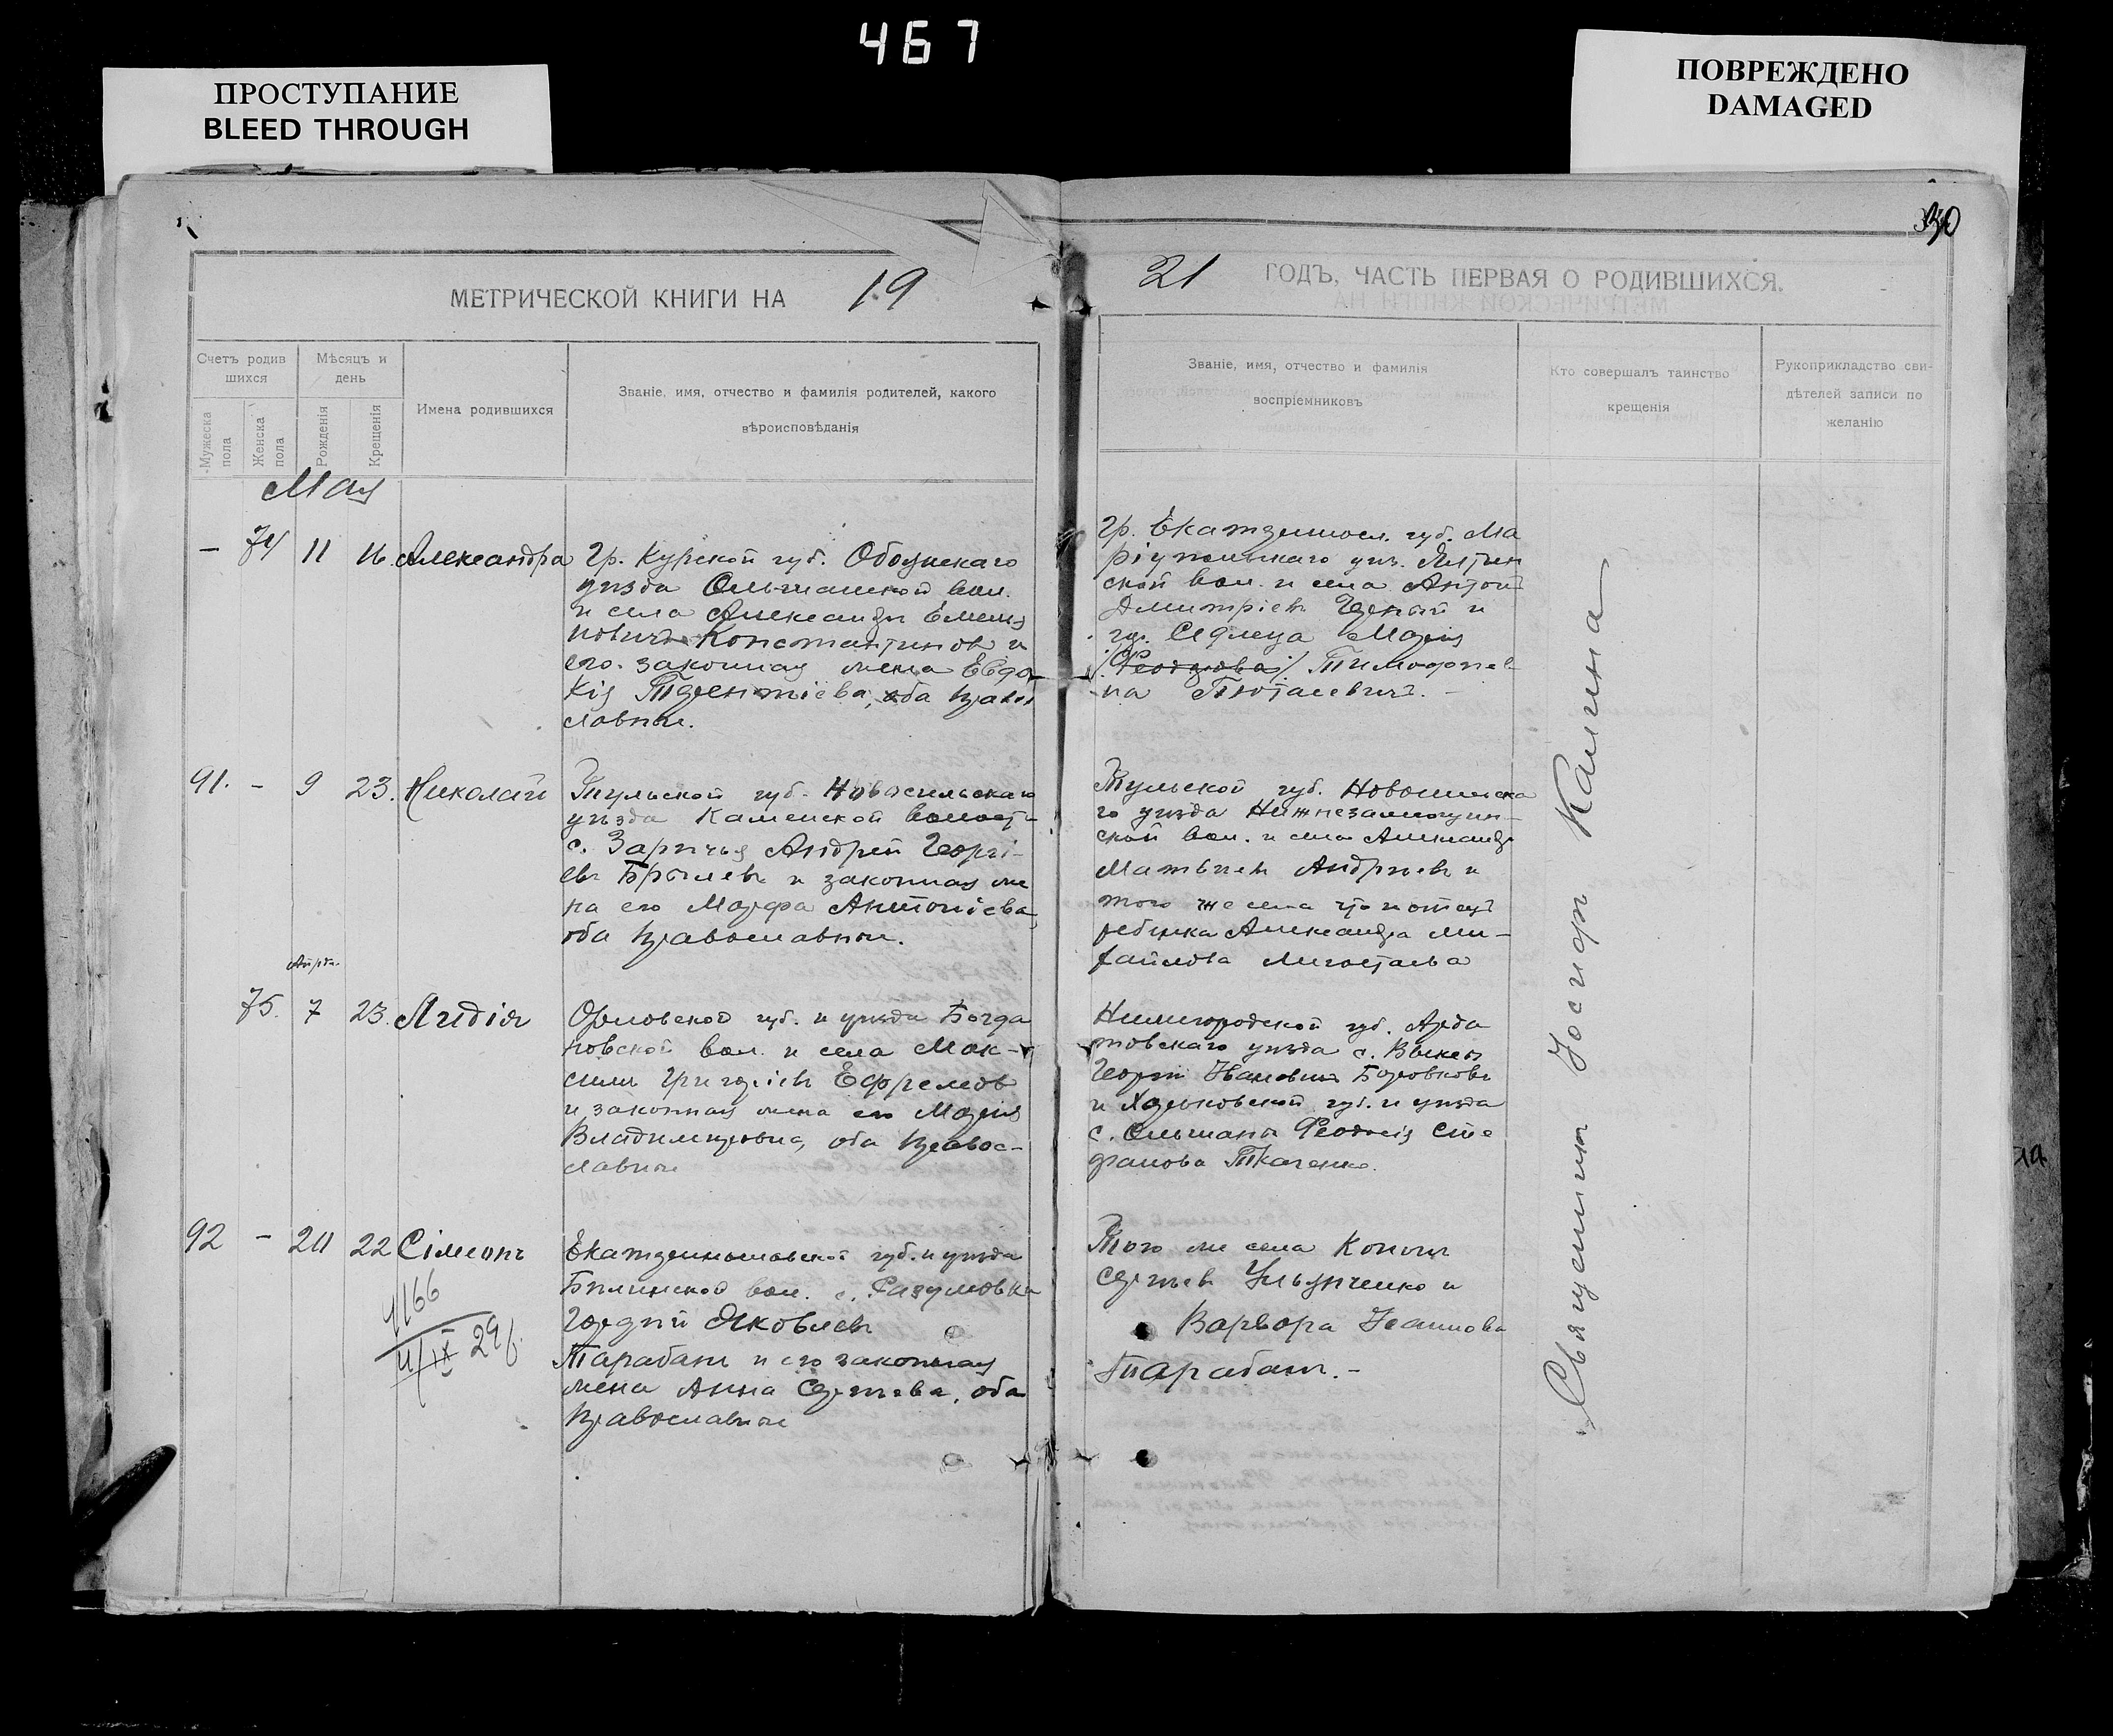 467
ПРОСТУПАНИЕ
BLEED THROUGH
ПОВРЕЖДЕНО
DAMAGED
МЕТРИЧЕСКОЙ КНИГИ НА 19
21 ГОДЪ, ЧАСТЬ ПЕРВАЯ О РОДИВШИХСЯ.
Счетъ родив
шихся
Мужеска
пола
Женска
пола
Мѣсяцъ и
день
Рожденія
Крещенія
Имена родившихся
Званіе, имя, отчество и фамилія родителей, какого
вѣроисповѣданія
Званіе, имя, отчество и фамилія
воспріемниковъ
Кто совершалъ таинство
крещенія
Рукоприкладство сви-
дѣтелей записи по
желанію
Май
— 74 11 16 Александра
Гр. Курской губ. Обоунскаго
уѣзда Ольшанской вол.
и села Александръ Емелья
новичъ Константинов и
его законная жена Евдо
кія Терентіева, оба право
славные.
Гр. Екатеринос. губ. Ма
ріупольскаго уѣз. Ялтин
ской вол. и села Антонъ
Дмитріевъ и
гр. Седлеца Марія
Тимофѣев
на
91. - 9 23. Николай
Тульской губ. Новосильскаго
уѣзда Каменской волости
с. Зарѣчья Андрей Георгі-
евъ Брылевъ и законная же
на его Марфа Антоніева
оба православные.
Тульской губ. Новосильска
го уѣзда
ской вол. и села Александр
Матвѣев Андреевъ и
того же села что и отецъ
ребенка Александра Ми-
хайлова
Апрѣл.
75. 7 23. Лидія
Орловской губ. и уѣзда Богда
новской вол. и села Мак-
симъ Григоріевъ Ефремов
и законная жена его Марія
Владимировна, оба правос-
лавные
Нижегородской губ. Арда
товскаго уѣзда с. Выкса
Георгій Ивановичъ Боровковъ
и Харьковской губ. и уѣзда
с. Ольшаны Феодосія Сте
фанова Ткаченко.
92 - 20 22 Сімеонъ
1166
4/IX 29 г.
Екатеринославской губ. и уѣзда
вол. с. Разумовка
Гордѣй Яковлевъ
Тарабанъ и его законная
жена Анна Сергѣева, оба
православные
Того же села Кононъ
Сергѣев и
Варвара Іоаннова
Тарабанъ.-
Священникъ Іосифъ Калина